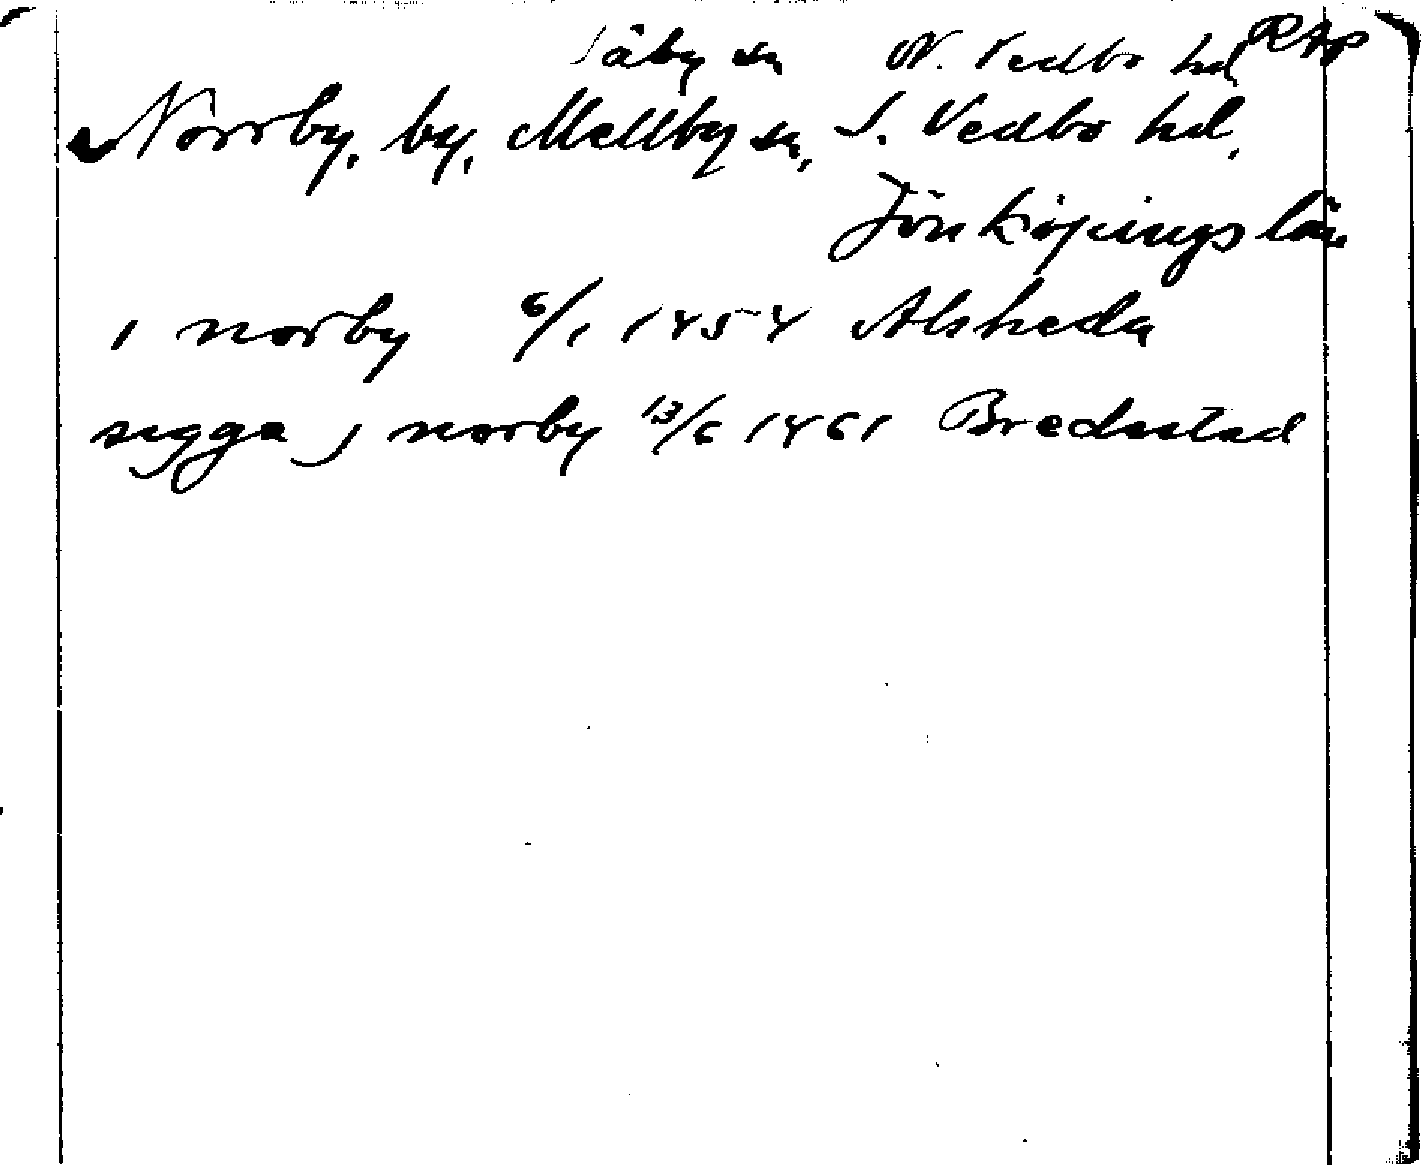 Säby sn N. Vedbo hd RAp
Norrby, by, Mellby sn, S. Vedbo hd,
Jönköpings län
i norby 6/1 1454 Alsheda
sigga j norby 13/6 1461 Bredestad